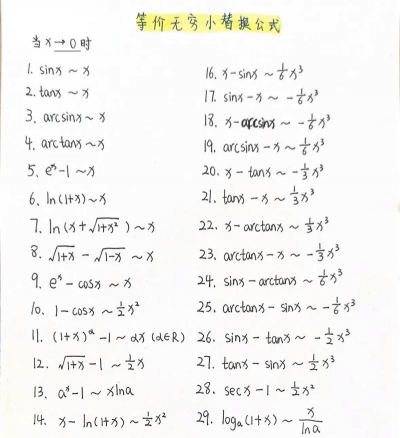 等价无穷小替换公式
当 x → 0 时
1. sinx ~ x
2. tanx ~ x
3. arcsinx ~ x
4. arctanx ~ x
5. eˣ-1 ~ x
6. ln(1+x) ~ x
7. ln(x+√(1+x²)) ~ x
8. √(1+x) - √(1-x) ~ x
9. eˣ - cosx ~ x
10. 1-cosx ~ ½x²
11. (1+x)^α -1 ~ αx (α∈R)
12. √(1+x) -1 ~ ½x
13. aˣ-1 ~ xlna
14. x- ln(1+x) ~ ½x²
16. x-sinx ~ 1/6 x³
17. sinx-x ~ -1/6 x³
18. x-arcsinx ~ -1/6 x³
19. arcsinx-x ~ 1/6 x³
20. x - tanx ~ -1/3 x³
21. tanx - x ~ 1/3 x³
22. x-arctanx ~ 1/3 x³
23. arctanx-x ~ -1/3 x³
24. sinx-arctanx ~ 1/6 x³
25. arctanx - sinx ~ -1/6 x³
26. sinx - tanx ~ -½x³
27. tanx - sinx ~ ½x³
28. secx -1 ~ ½x²
29. logₐ(1+x) ~ x/lna